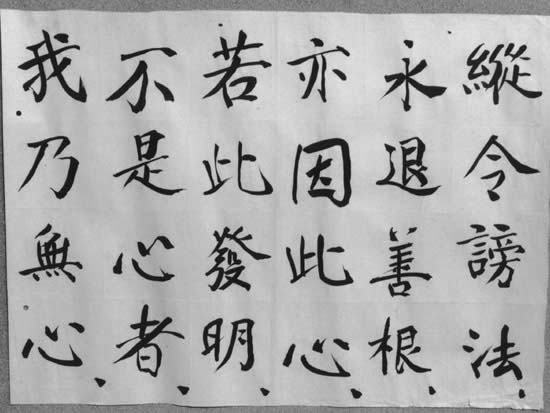 縱令謗法、
永退善根、
亦因此心、
若此發明、
不是心者、
我乃無心、